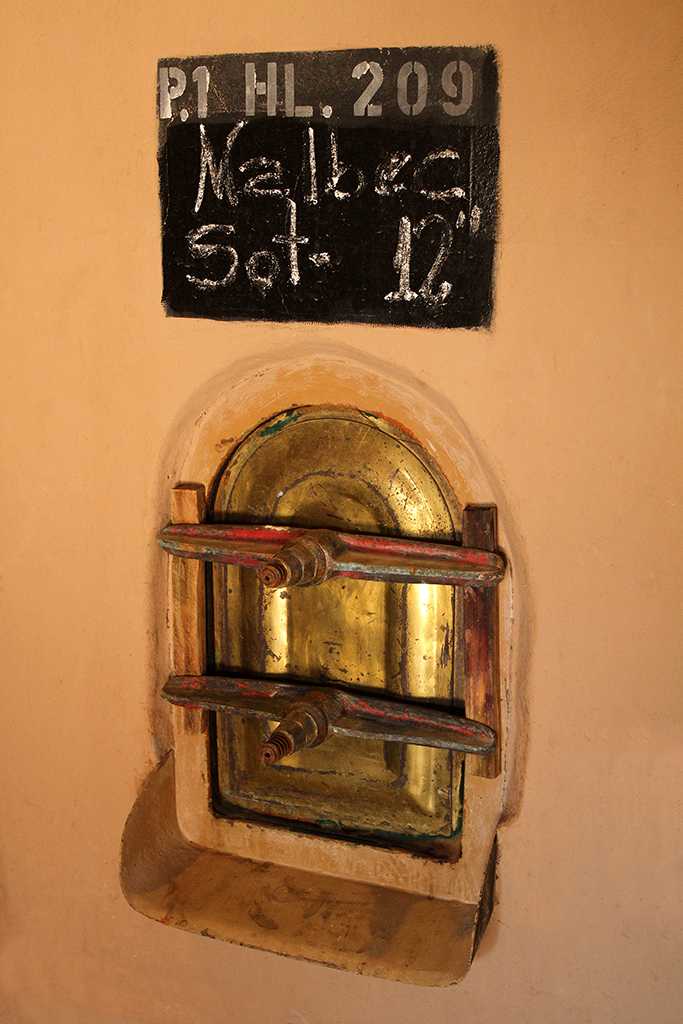 P.1 HL. 209
Malbec
Sot. 12"